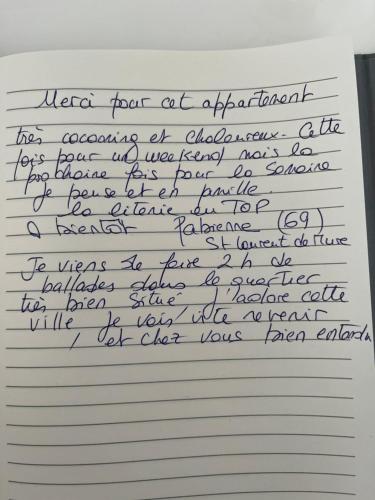 Merci pour cet appartement
très cocooning et chaleureux. Cette
fois pour un weekend mais la
prochaine fois pour la semaine
je pense et en famille.
la literie au TOP
A bientôt Fabienne (69)
St Laurent de Mure
Je viens de faire 2h de
ballades dans le quartier
très bien situé j'adore cette
ville je vais vite revenir
et chez vous bien entendu